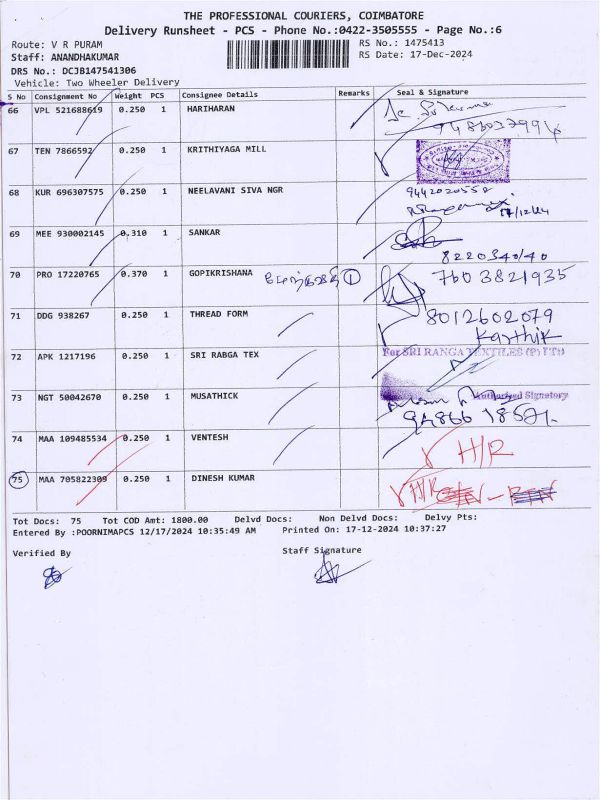 THE PROFESSIONAL COURIERS, COIMBATORE
Delivery Runsheet - PCS - Phone No.:0422-3505555 - Page No.:6
Route: V R PURAM
RS No.: 1475413
Staff: ANANDHAKUMAR
RS Date: 17-Dec-2024
DRS No.: DCJB147541306
Vehicle: Two Wheeler Delivery
S No Consignment No Weight PCS Consignee Details Remarks Seal & Signature
66 VPL 521688619 0.250 1 HARIHARAN
67 TEN 7866592 0.250 1 KRITHIYAGA MILL
68 KUR 696307575 0.250 1 NEELAVANI SIVA NGR 9442020558
17/12/24
69 MEE 930002145 0.310 1 SANKAR
8220340140
70 PRO 17220765 0.370 1 GOPIKRISHANA 1 7603821935
71 DDG 938267 0.250 1 THREAD FORM 8012602079
Karthik
72 APK 1217196 0.250 1 SRI RABGA TEX For SRI RANGA TEXTILES (P) LTD
Authorised Signatory
73 NGT 50042670 0.250 1 MUSATHICK
94866 18521.
74 MAA 109485534 0.250 1 VENTESH H/R
75 MAA 705822309 0.250 1 DINESH KUMAR H/R
Tot Docs: 75 Tot COD Amt: 1800.00 Delvd Docs: Non Delvd Docs: Delvy Pts:
Entered By :POORNIMAPCS 12/17/2024 10:35:49 AM Printed On: 17-12-2024 10:37:27
Verified By
Staff Signature